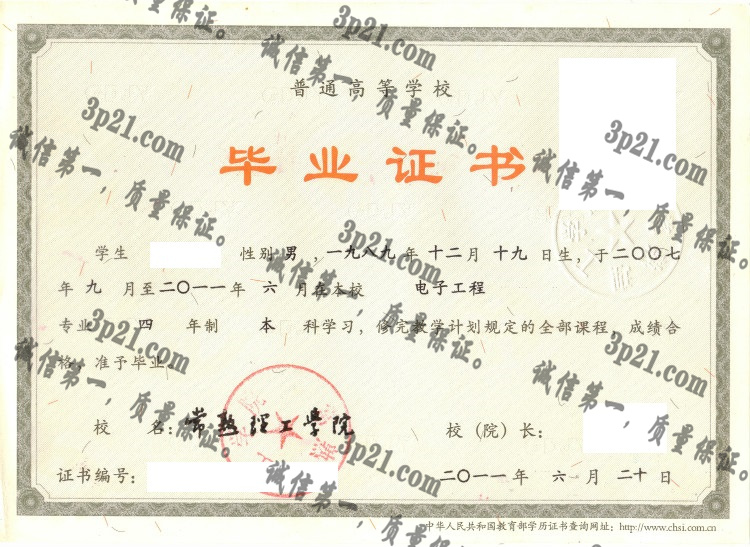 普通高等学校
毕业证书
学生 性别 男 ，一九八九 年 十二 月 十九 日生，于二〇〇七
年 九 月至二〇一一年 六 月在本校 电子工程
专业 四 年制 本 科学习，修完教学计划规定的全部课程，成绩合
格，准予毕业。
校 名：常熟理工学院 校（院）长：
证书编号： 二〇一一年 六 月 二十 日
中华人民共和国教育部学历证书查询网址：http://www.chsi.com.cn
3p21.com
诚信第一，质量保证。
3p21.com
诚信第一，质量保证。
3p21.com
诚信第一，质量保证。
3p21.com
诚信第一，质量保证。
3p21.com
诚信第一，质量保证。
3p21.com
诚信第一，质量保证。
3p21.com
诚信第一，质量保证。
质量保证。